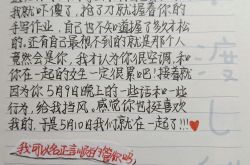 我就吓傻了，搓了刀就握着你的
手写作业，自己也不知道握了多久松
的。还有自己最想不到的就是那个人
竟然会是你，我才认为你很空调，和
你在一起的女生一定很累吧！接着就
因为你5月9日晚上的一些话和一些
行为，给我挡风。感觉你也挺喜欢
我的，于是5月10日我们就在一起了!!!
我可以名正言顺的管你吗，